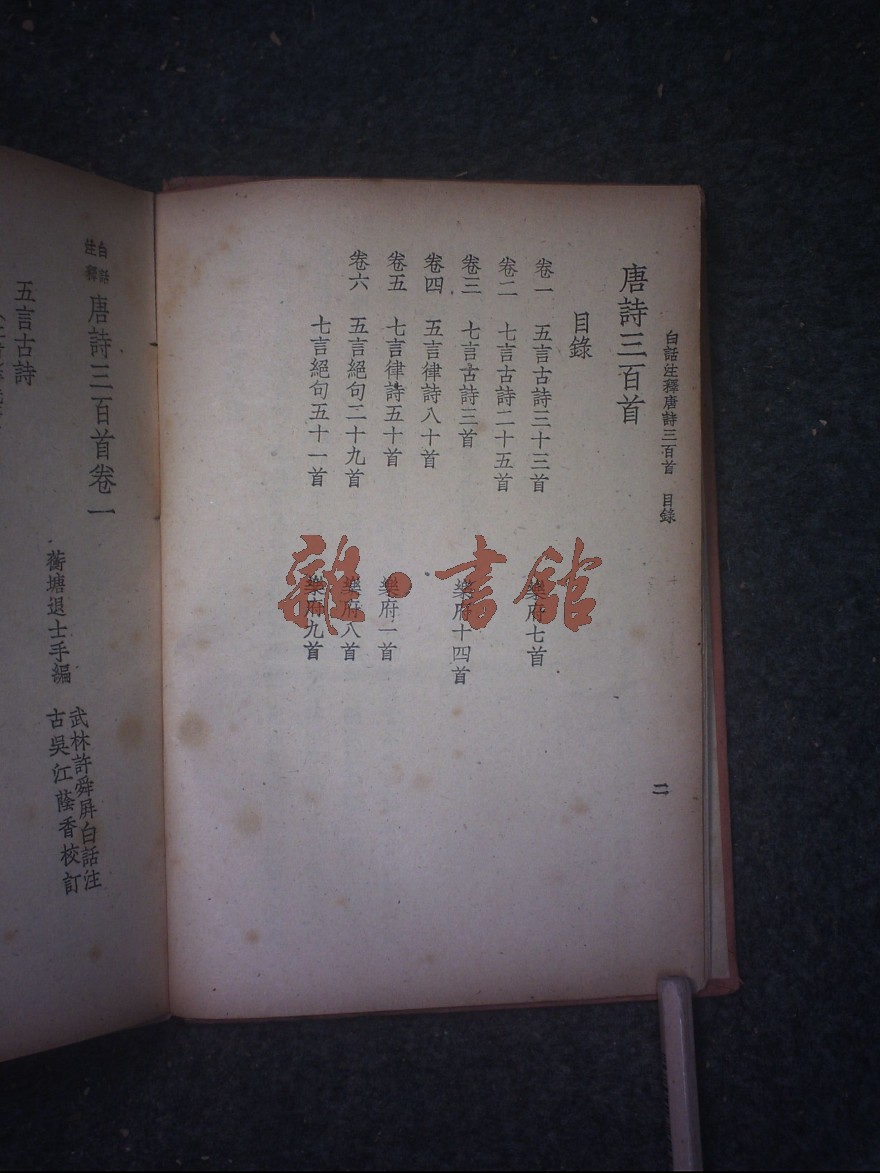 白話注釋唐詩三百首　目錄
二
唐詩三百首
目錄
卷一　五言古詩三十三首　樂府七首
卷二　七言古詩二十五首
卷三　七言古詩三首　樂府十四首
卷四　五言律詩八十首
卷五　七言律詩五十首　樂府一首
卷六　五言絕句二十九首　樂府八首
七言絕句五十一首　樂府九首
雜·書館
白話注釋　唐詩三百首卷一
蘅塘退士手編
武林許舜屏白話注
古吳江蔭香校訂
五言古詩